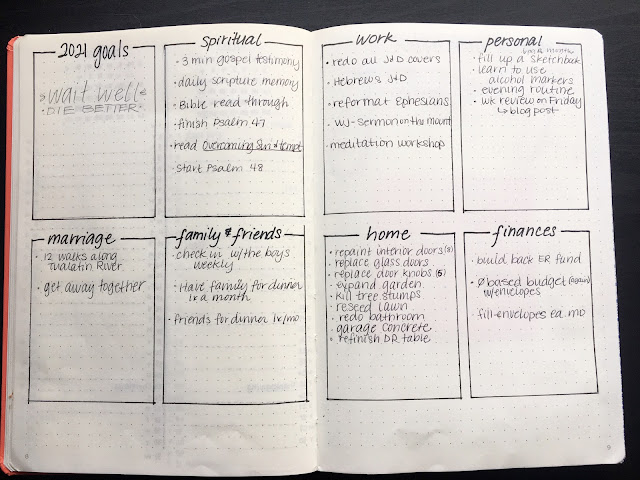 2021 goals
wait well
DIE BETTER
spiritual
• 3 min gospel testimony
• daily scripture memory
• Bible read through
• finish Psalm 47
• read Overcoming Sin & tempt
• start Psalm 48
work
• redo all J+D covers
• Hebrews J+D
• reformat Ephesians
• WJ-Sermon on the mount
• meditation workshop
personal
• fill up a sketchbook
• learn to use
alcohol markers
• evening routine
• wk review on Friday
↳ blog post
marriage
• 12 walks along
Tualatin River
• get away together
family & friends
• check in w/the boys
weekly
• Have family for dinner
1x a month
• friends for dinner 1x/mo
home
• repaint interior doors
• replace glass doors
• replace door knobs (5)
• expand garden
• kill tree stumps
• reseed lawn
• redo bathroom
• garage concrete
• refinish DR table
finances
• build back ER fund
• Ø based budget (again)
w/envelopes
• fill envelopes ea. mo
8
9